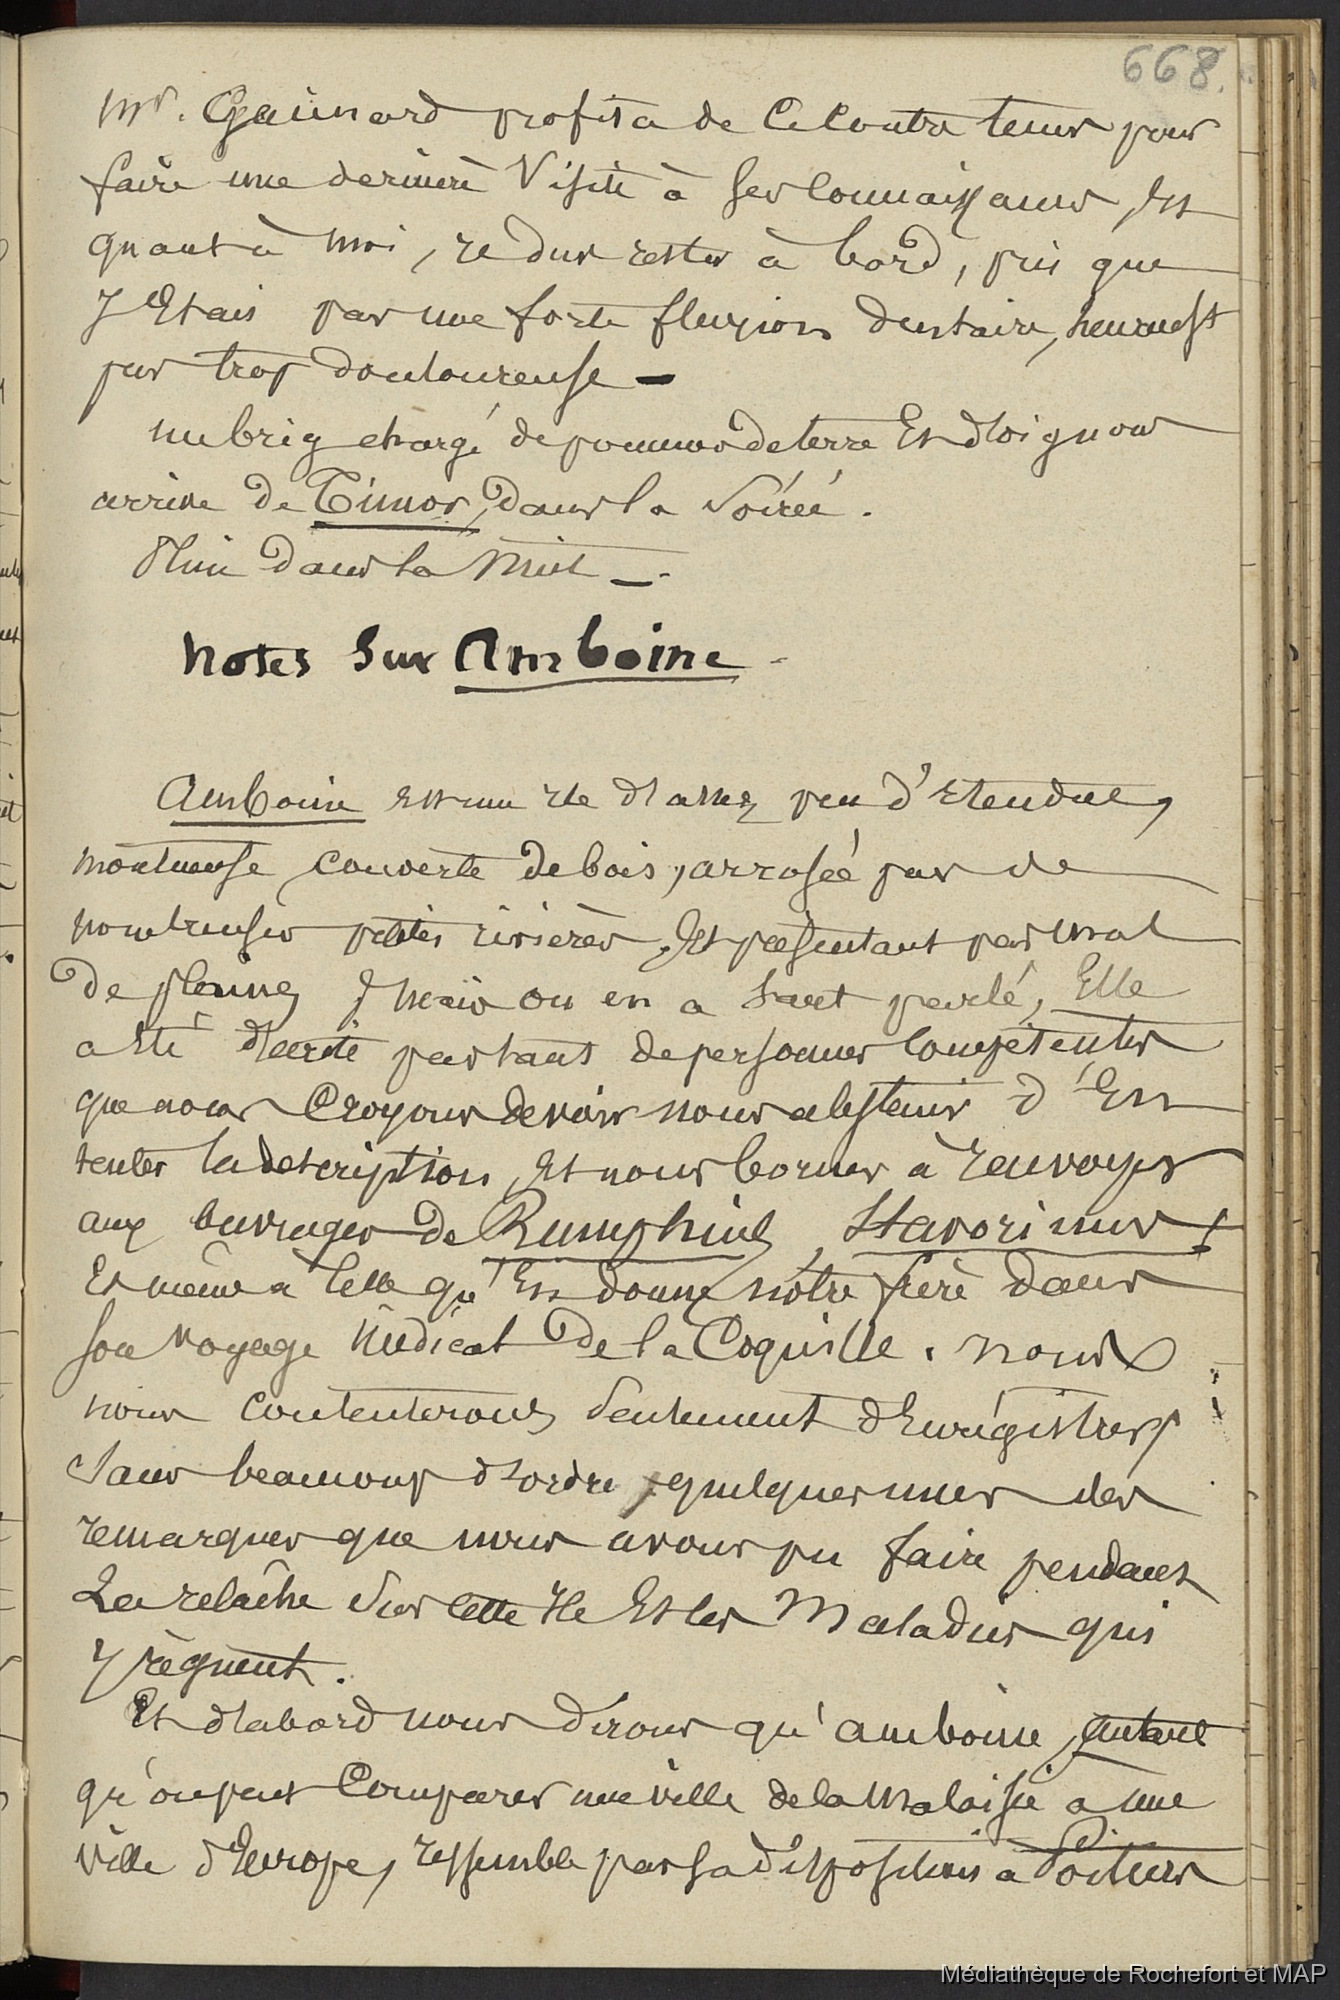 668.
Mr. Gaimard profita de ce contre tems pour
faire une dernière visite à ses connaissances, Et
quant à moi, je dus rester à bord, pris que
j'Etais par une forte fluxion dentaire, heureust
pas trop douloureuse —
un brig chargé de pommes de terre Et d'oignons
arrive de Timor, dans la soirée.
Pluie dans la nuit —.
Notes sur Amboine -
Amboine est une ile d'assez peu d'Etendue,
montueuse, couverte de bois, arrosée par de
nombreuses petites rivières, Et présentant pas mal
de plaines, mais on en a tant parlé, Elle
a Eté décrite par tant de personnes compétentes
que nous Croyons devoir nous abstenir d'En
tenter la description, Et nous borner à renvoyer
aux ouvrages de Rumphius, Stavorinus,
Et même à celle qu'En donne nôtre frère dans
son voyage médical de la Coquille. Nous
nous contenterons seulement d'Enrégistrer,
sans beaucoup d'ordre, quelques unes des
remarques que nous avons pu faire pendant
La relâche sur cette Ile Et les Maladies qui
y règnent.
Et d'abord nous dirons qu'amboine, autant
qu'on peut Comparer une ville de la Malaisie à une
ville d'Europe, ressemble par sa disposition à Poitiers
Médiathèque de Rochefort et MAP